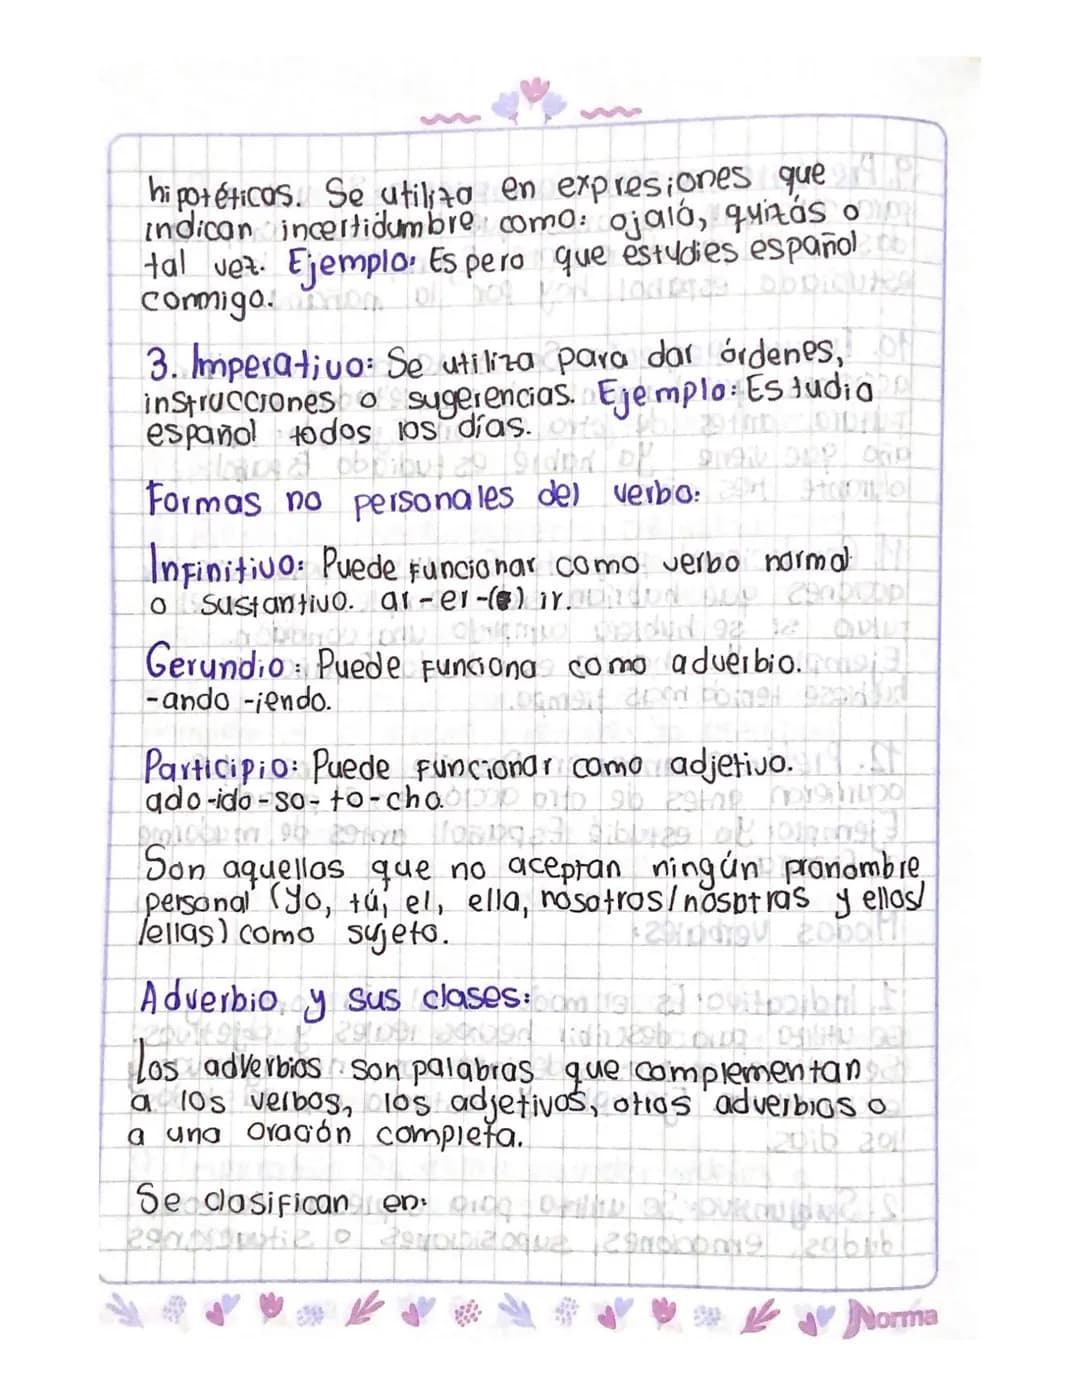 hipotéticas. Se utiliza en expresiones que
indican incertidumbre como: ojalá, quizás o
tal vez. Ejemplo: Espero que estudies español
conmigo.
3. Imperativo: Se utiliza para dar órdenes,
instrucciones o sugerencias. Ejemplo: Estudia
español todos los días.
Formas no personales del verbo:
Infinitivo: Puede funcionar como verbo normal
o sustantivo. ar-er-() ir.
Gerundio: Puede funciona como advérbio.
-ando -iendo.
Participio: Puede funcionar como adjetivo.
ado-ido-so-to-cho.
Son aquellos que no aceptan ningún pronombre
personal (yo, tú, el, ella, nosotros/nosotras y ellos/
/ellas) como sujeto.
Adverbio y sus clases:
Los adverbios son palabras que complementan
a los verbos, los adjetivos, otros adverbios o
a una oración completa.
Se clasifican en:
Norma